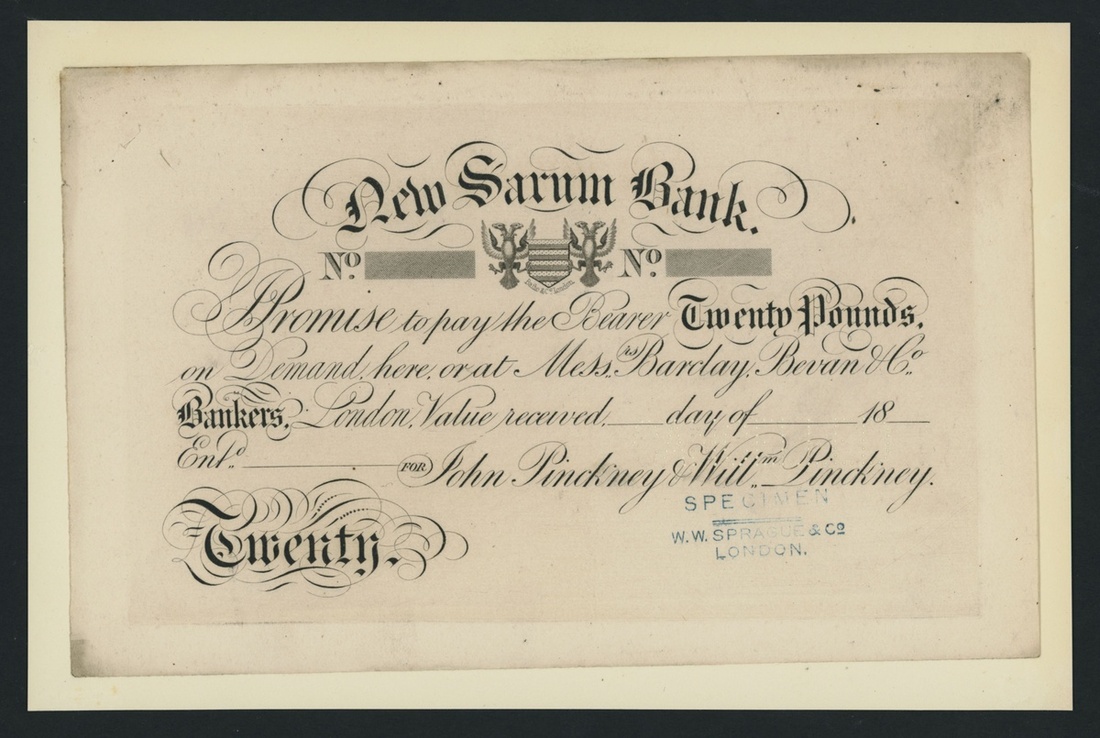 New Sarum Bank.
No. No.
I Promise to pay the Bearer Twenty Pounds.
on Demand, here, or at Messrs. Barclay, Bevan & Co.
Bankers, London, Value received. day of 18
Entd. FOR John Pinckney & Willm. Pinckney.
Twenty.
SPECIMEN
W.W. SPRAGUE & Co
LONDON.